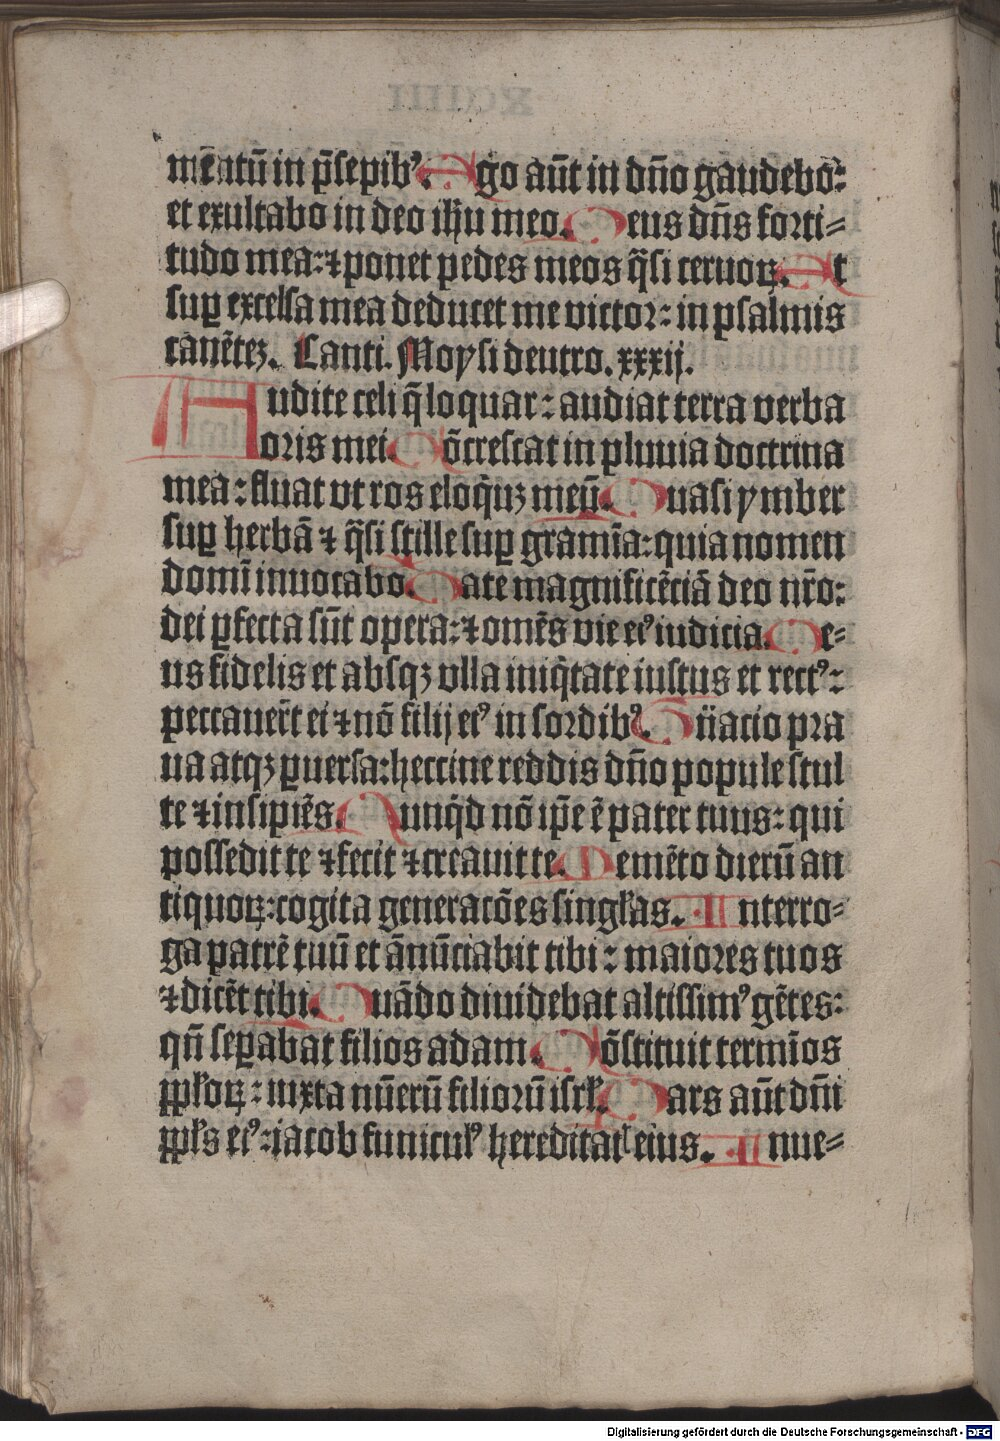 mētū in p̄sepibꝰ. Ago aūt in dn̄o gaudebo:
et exultabo in deo ih̄u meo. Deus dn̄s forti⸗
tudo mea: ⁊ ponet pedes meos q̄si ceruoꝝ. Et
suꝑ excelsa mea deducet me victor: in psalmis
canētez. Canti. Moysi deutro. xxxij.
Audite celi q̄ loquar: audiat terra verba
oris mei. Cōcrescat in pluuia doctrina
mea: fluat vt ros eloq̄uꝫ meū. Quasi ymber
suꝑ herbā ⁊ q̄si stille suꝑ gramīa: quia nomen
domī inuocabo. Date magnificēciā deo nr̄o:
dei ꝑfecta sūt opera: ⁊ omēs vie eiꝰ iudicia. De⸗
us fidelis et absqꝫ vlla iniq̄tate iustus et rectꝰ:
peccauer̄t ei ⁊ nō filij eiꝰ in sordibꝰ. Gn̄acio pra
ua atqꝫ ꝑuersa: heccine reddis dn̄o popule stul
te ⁊ insipiēs. Nunq̄d nō ip̄e ē pater tuus: qui
possedit te ⁊ fecit ⁊ creauit te. Memēto dierū an
tiquoꝝ: cogita generacōes singl̄as. Interro⸗
ga patrē tuū et ānūciabit tibi: maiores tuos
⁊ dicēt tibi. Quādo diuidebat altissimꝰ gētes:
qn̄ seꝑabat filios adam. Cōstituit termīos
pp̄loꝝ: iuxta nūerū filiorū isrl̄. Pars aūt dn̄i
pp̄ls eiꝰ: iacob funiculꝰ hereditatꝭ eius. Inue⸗
XCIIII
Digitalisierung gefördert durch die Deutsche Forschungsgemeinschaft - DFG